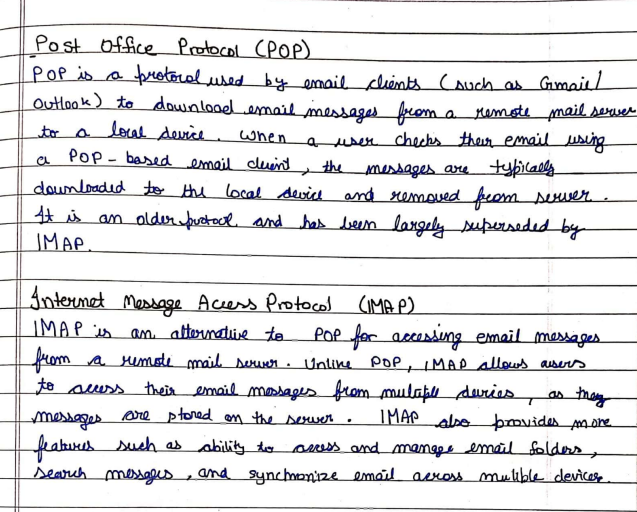 Post Office Protocol (POP)
POP is a protocol used by email clients (such as Gmail/
Outlook) to download email messages from a remote mail server
to a local device. When a user checks their email using
a POP-based email client, the messages are typically
downloaded to the local device and removed from server.
It is an older protocol and has been largely superseded by
IMAP.
Internet Message Access Protocol (IMAP)
IMAP is an alternative to POP for accessing email messages
from a remote mail server. Unlike POP, IMAP allows users
to access their email messages from multiple devices, as they
messages are stored on the server. IMAP also provides more
features such as ability to access and manage email folders,
search messages, and synchronize email across multible devices.